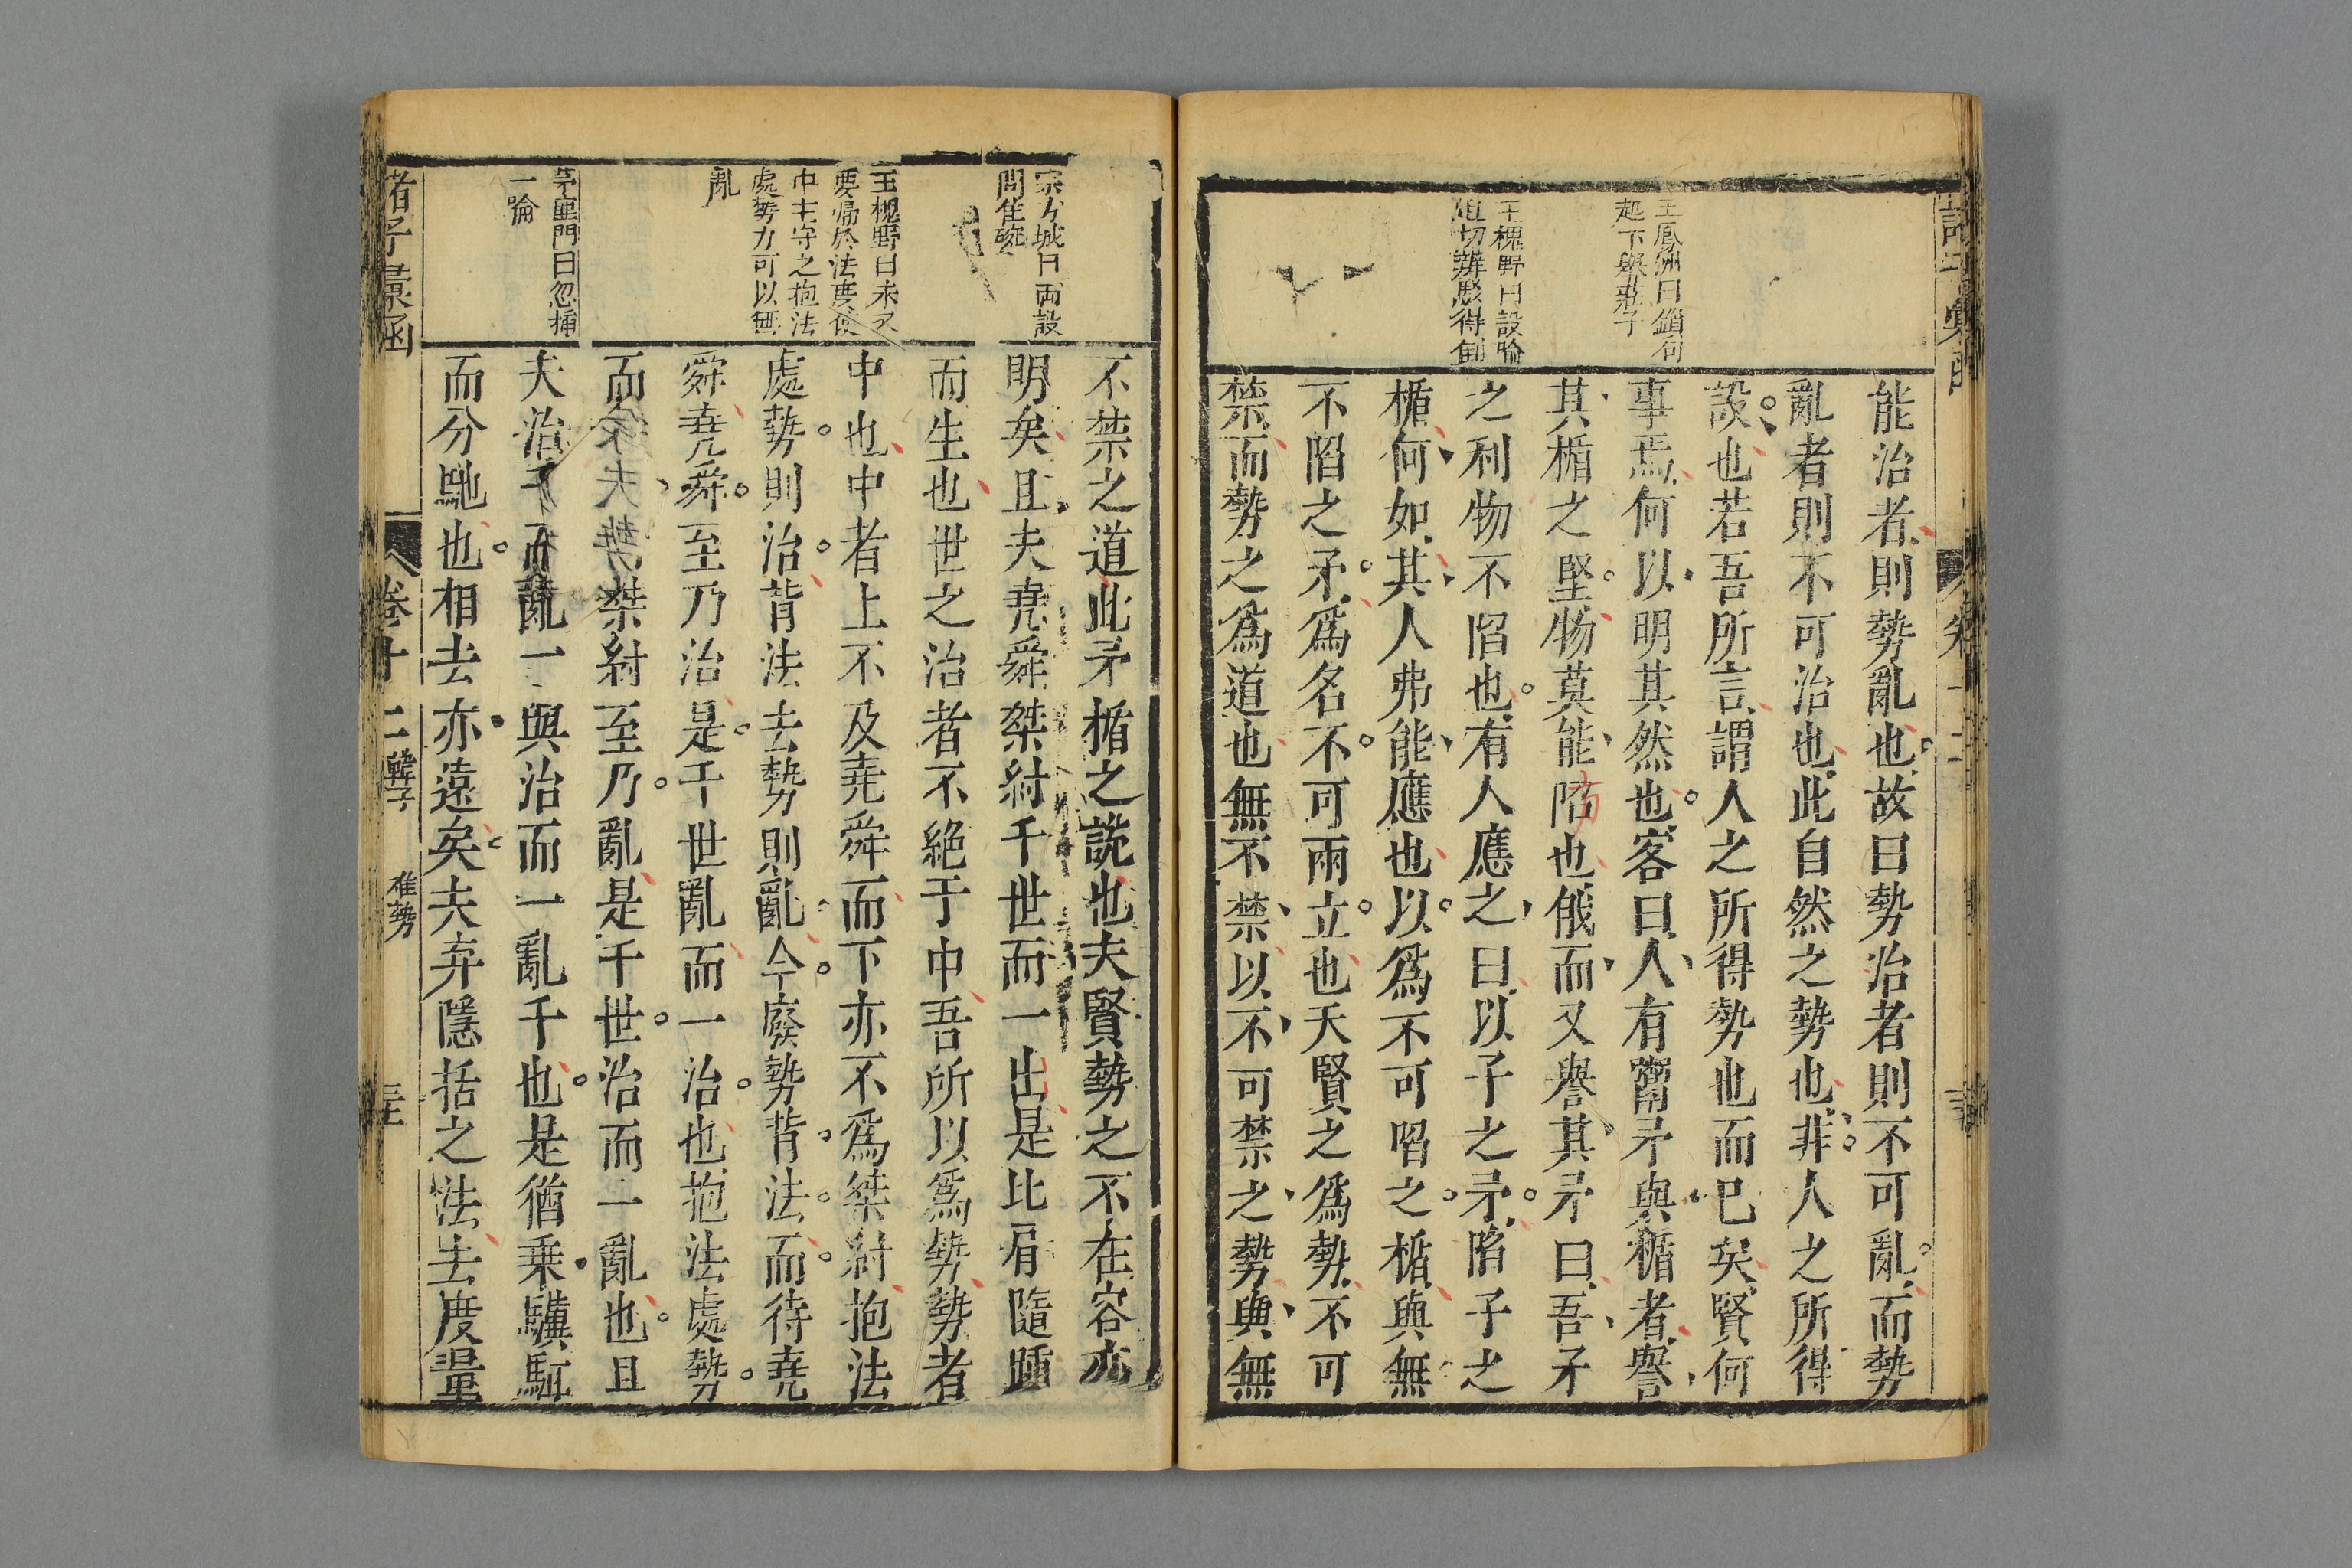 王鳳洲曰鎖句
起下與莊子
王槐野曰設喻
能治者則勢亂也故曰勢治者則不可亂而勢
亂者則不可治也此自然之勢也非人之所得
設也若吾所言謂人之所得勢也而已矣賢何
事焉何以明其然也客曰人有鬻矛與楯者譽
其楯之堅物莫能陷也俄而又譽其矛曰吾矛
之利物不陷也有人應之曰以子之矛陷子之
楯何如其人弗能應也以爲不可陷之楯與無
不陷之矛爲名不可兩立也夫賢之爲勢不可
禁而勢之爲道也無不禁以不可禁之勢與無
宗方城曰兩設
問隹
王槐野曰未又
要歸於法度使
中主守之抱法
處勢力可以無
亂
茅鹿門曰忽插
一喻
不禁之道此矛楯之說也夫賢勢之不在容亦
明矣且夫堯舜桀紂千世而一出是比肩隨踵
而生也世之治者不絶于中吾所以爲勢勢者
中也中者上不及堯舜而下亦不爲桀紂抱法
處勢則治背法去勢則亂今廢勢背法而待堯
舜堯舜至乃治是千世亂而一治也抱法處勢
而桀紂至乃亂是千世治而一亂也且
夫治千而亂一與治而一亂千也是猶乘驥駬
而分馳也相去亦遠矣夫弃隱括之法去度量
諸子彙函
卷十二
韓子
难勢